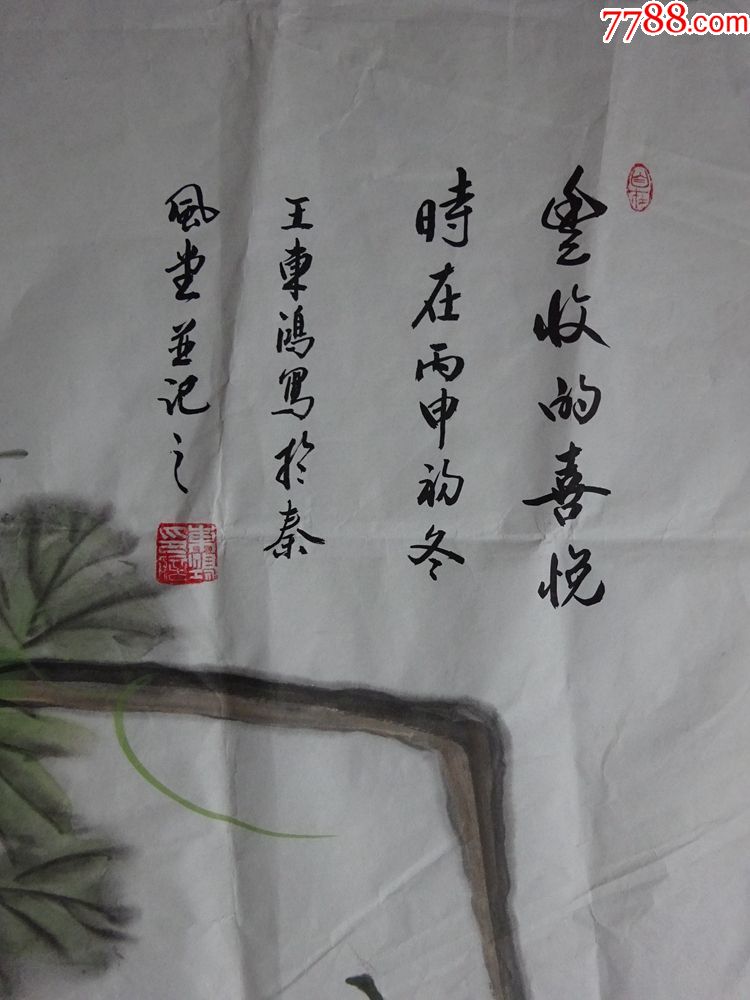 7788.com
自在
豐收的喜悅
時在丙申初冬
王東鴻写於秦
風堂並记之